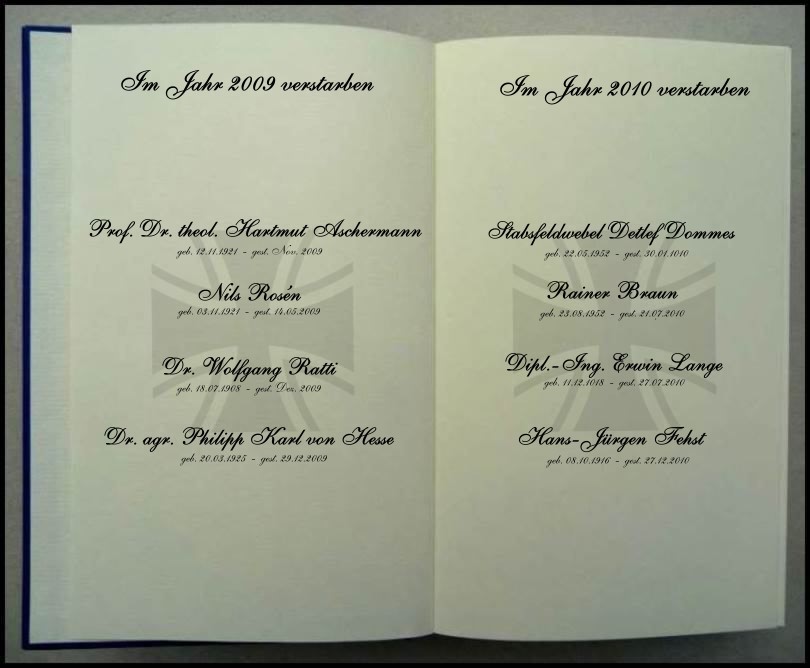 Im Jahr 2009 verstarben
Prof. Dr. theol. Hartmut Aschermann
geb. 12.11.1921 - gest. Nov. 2009
Nils Rosén
geb. 03.11.1921 - gest. 14.05.2009
Dr. Wolfgang Ratti
geb. 18.07.1908 - gest. Dez. 2009
Dr. agr. Philipp Karl von Hesse
geb. 20.03.1925 - gest. 29.12.2009
Im Jahr 2010 verstarben
Stabsfeldwebel Detlef Dommes
geb. 22.05.1952 - gest. 30.01.1010
Rainer Braun
geb. 23.08.1952 - gest. 21.07.2010
Dipl.-Ing. Erwin Lange
geb. 11.12.1018 - gest. 27.07.2010
Hans-Jürgen Fehst
geb. 08.10.1916 - gest. 27.12.2010